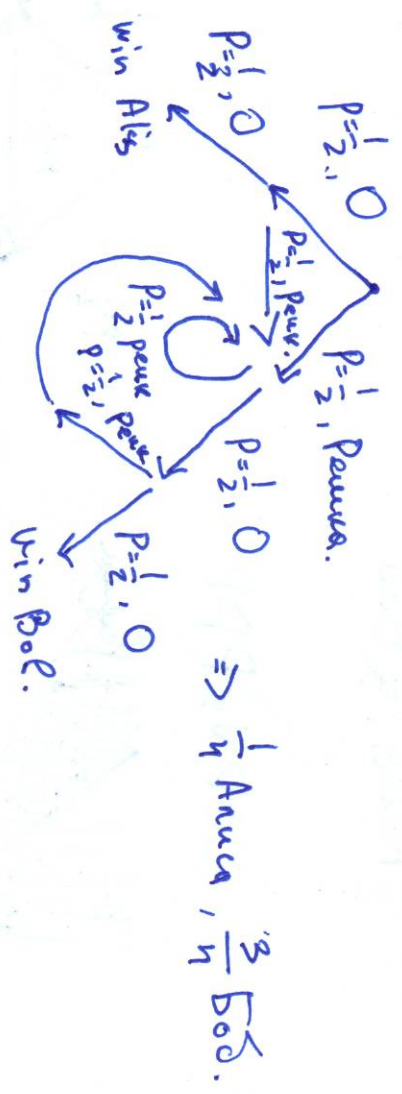 P=1/2, О
P=1/2, Решка.
P=1/2, О
P=1/2, Реш.
win Alis
P=1/2, О
P=1/2 реш
P=1/2, Реш
P=1/2, О
Win Bob.
=> 1/4 Алиса, 3/4 Боб.